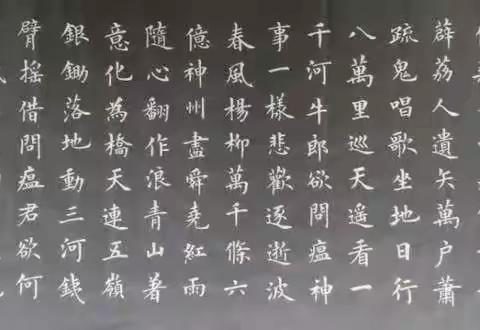 薜荔人遺矢萬户蕭
疏鬼唱歌坐地日行
八萬里巡天遙看一
千河牛郎欲問瘟神
事一樣悲歡逐逝波
春風楊柳萬千條六
億神州盡舜堯紅雨
隨心翻作浪青山著
意化為橋天連五嶺
銀鋤落地動三河銕
臂搖借問瘟君欲何